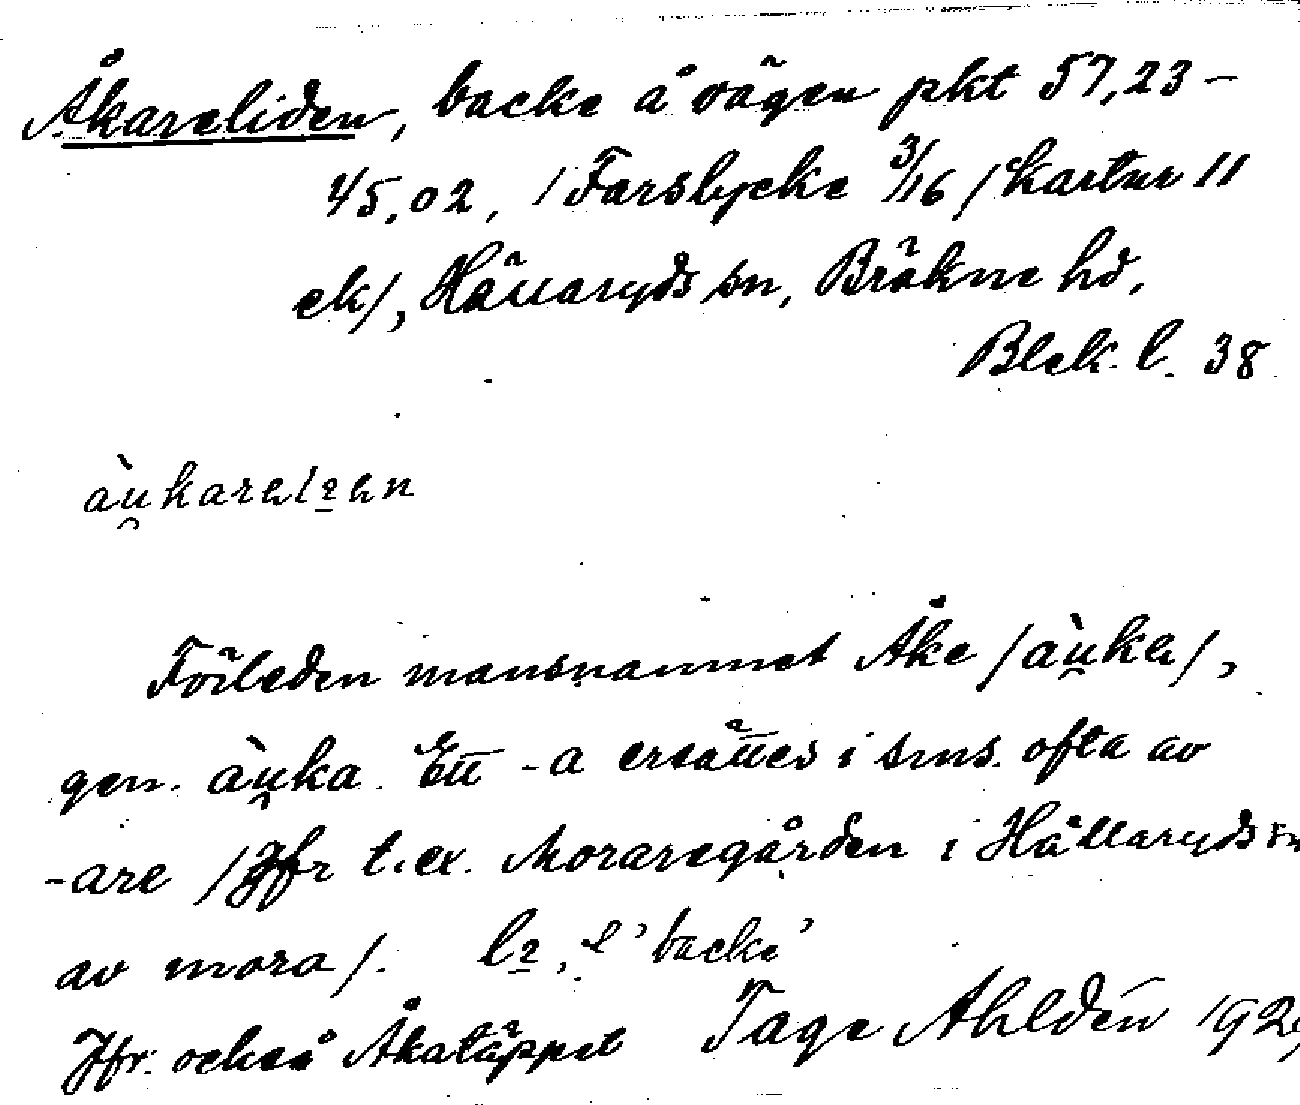 Åkareliden, backe å vägen pkt 57,23 –
45,02, /Farslycke 3/16 /kartur 11
ek/, Hällaryds sn, Bräkne hd,
Blek. l. 38
àu̯karelen
Förleden mansnamnet Åke /àu̯ka/,
gen. àu̯ka. Ett -a ersättes i sms. ofta av
-are /Jfr t.ex. Moraregården i Hällaryds sn
av mora/. 'backe'
Jfr. också Åkatäppet Tage Ahldén 192